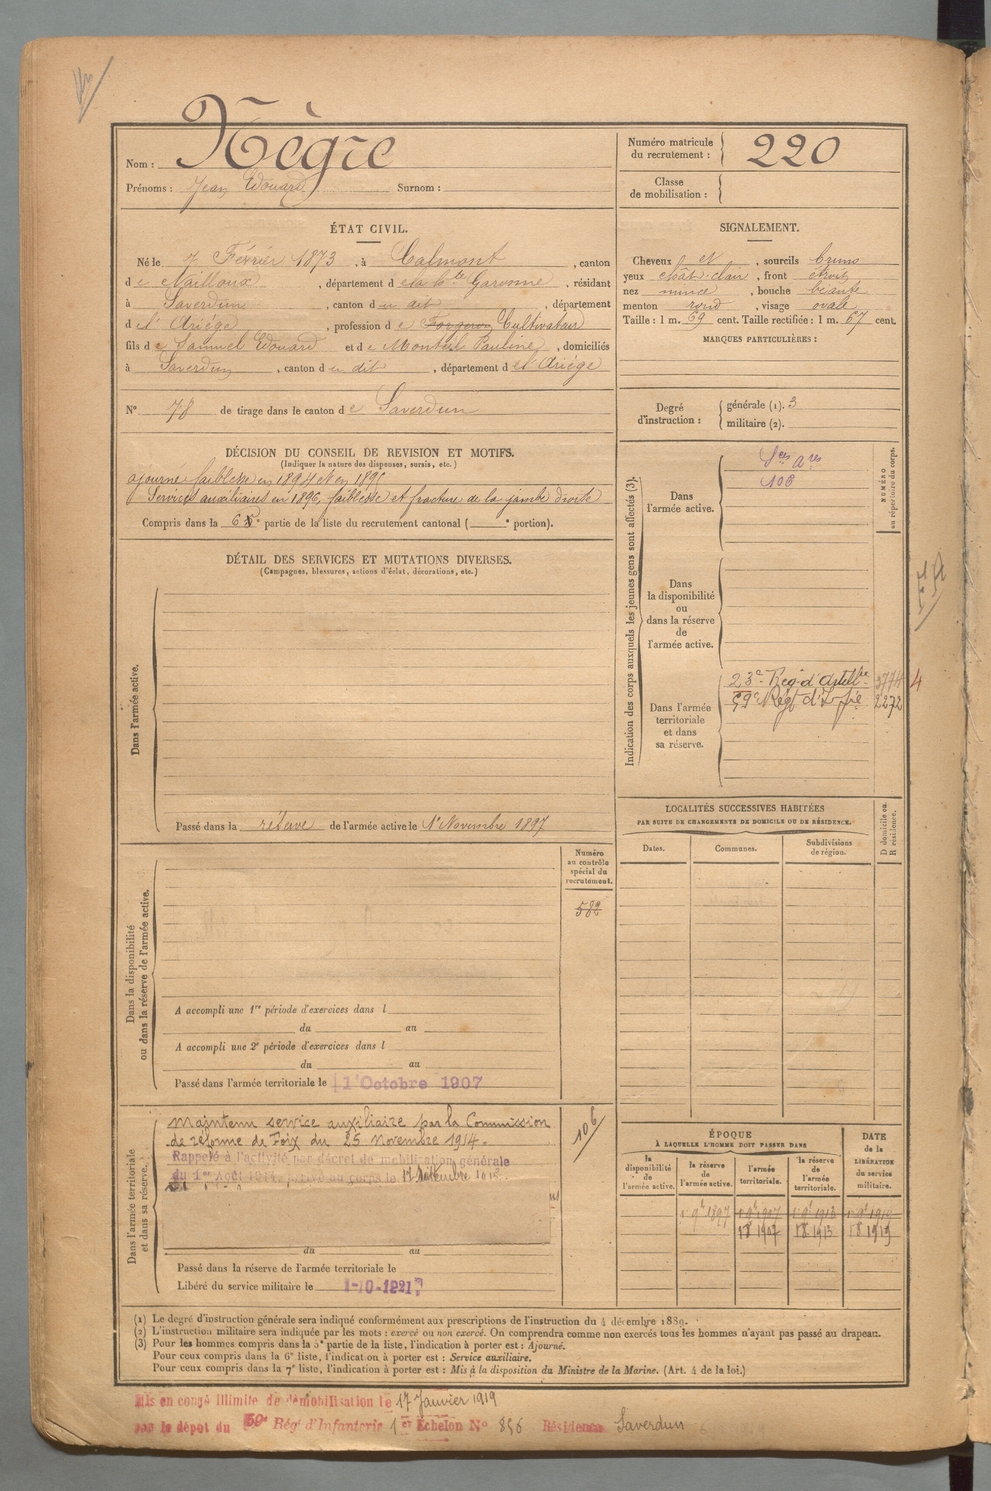 Nom : Nègre
Prénoms : Jean Edouard Surnom :
Numéro matricule du recrutement : 220
Classe de mobilisation :
ÉTAT CIVIL.
Né le 7 Février 1873, à Calmont, canton
de Nailloux, département de la Hte Garonne, résidant
à Saverdun, canton du dit, département
de l'Ariége, profession de Forgeron Cultivateur
fils de Samuel Edouard et de Monteil Pauline, domiciliés
à Saverdun, canton du dit, département de l'Ariége
N° 78 de tirage dans le canton de Saverdun
SIGNALEMENT.
Cheveux et, sourcils bruns
yeux chât-clair, front étroit
nez mince, bouche béante
menton rond, visage ovale
Taille : 1 m. 69 cent. Taille rectifiée : 1 m. 67 cent.
MARQUES PARTICULIÈRES :
Degré d'instruction : générale (1). 3
militaire (2).
DÉCISION DU CONSEIL DE REVISION ET MOTIFS.
(Indiquer la nature des dispenses, sursis, etc.)
ajourné faiblesse en 1894 et en 1895
Services auxiliaires en 1896, faiblesse et fracture de la jambe droite
Compris dans la 6e partie de la liste du recrutement cantonal ( e portion).
DÉTAIL DES SERVICES ET MUTATIONS DIVERSES.
(Campagnes, blessures, actions d'éclat, décorations, etc.)
Dans l'armée active.
Passé dans la réserve de l'armée active le 1er Novembre 1897
Indication des corps auxquels les jeunes gens sont affectés (3).
NUMÉRO au répertoire du corps.
Dans l'armée active.
Sces Ares
106
Dans la disponibilité ou dans la réserve de l'armée active.
Dans l'armée territoriale et dans sa réserve.
23e Reg d'Artillie 3774
59e Régt d'Infie 2272
LOCALITÉS SUCCESSIVES HABITÉES
PAR SUITE DE CHANGEMENTS DE DOMICILE OU DE RÉSIDENCE.
Dates. Communes. Subdivisions de région. D domicile ou R résidence.
Dans la disponibilité ou dans la réserve de l'armée active.
Numéro au contrôle spécial du recrutement.
582
A accompli une 1re période d'exercices dans l
du au
A accompli une 2e période d'exercices dans l
du au
Passé dans l'armée territoriale le 1 Octobre 1907
Dans l'armée territoriale et dans sa réserve.
Maintenu service auxiliaire par la Commission
de réforme de Foix du 25 Novembre 1914.
Rappelé à l'activité par décret de mobilisation générale
du 1er Août 1914, arrivé au corps le
106
du au
Passé dans la réserve de l'armée territoriale le
Libéré du service militaire le 1-10-1921
ÉPOQUE
À LAQUELLE L'HOMME DOIT PASSER DANS
DATE DE LA LIBÉRATION du service militaire.
la disponibilité de l'armée active. la réserve de l'armée active. l'armée territoriale. la réserve de l'armée territoriale.
1 9bre 1897 1 9bre 1907 1 9bre 1913
1 8 1907 1 8 1913 1 8 1919
(1) Le degré d'instruction générale sera indiqué conformément aux prescriptions de l'instruction du 4 décembre 1889.
(2) L'instruction militaire sera indiquée par les mots : exercé ou non exercé. On comprendra comme non exercés tous les hommes n'ayant pas passé au drapeau.
(3) Pour les hommes compris dans la 5e partie de la liste, l'indication à porter est : Ajourné.
Pour ceux compris dans la 6e liste, l'indication à porter est : Service auxiliaire.
Pour ceux compris dans la 7e liste, l'indication à porter est : Mis à la disposition du Ministre de la Marine. (Art. 4 de la loi.)
Mis en congé illimité de démobilisation le 17 Janvier 1919
par le dépot du 59e Rég d'Infanterie 1er Echelon N° 856 Résidence Saverdun